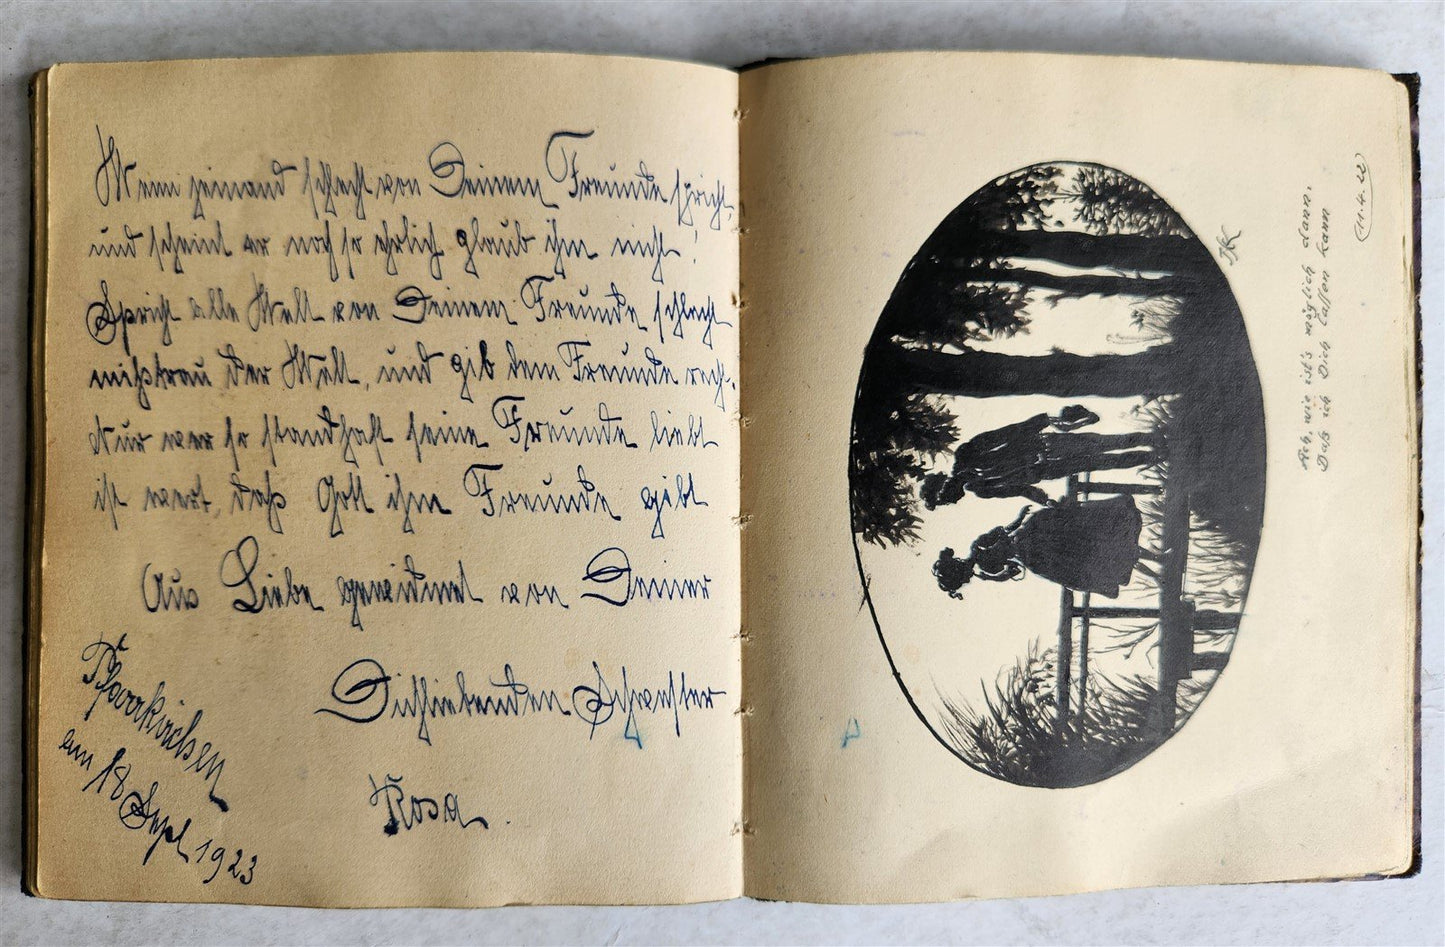 Wenn jemand schlecht von Deinem Freunde spricht,
und scheint er noch so ehrlich glaub ihm nicht!
Spricht alle Welt von Deinem Freunde schlecht
mißtrau der Welt, und gib dem Freunde recht.
Nur wer so standhaft seine Freunde liebt
ist wert, daß Gott ihm Freunde gibt
Aus Liebe gewidmet von Deiner
Dichliebenden Schwester
Rosa.
Pfarrkirchen
am 18 Sept 1923
Daß ich Dich lassen kann
(11.4.22)